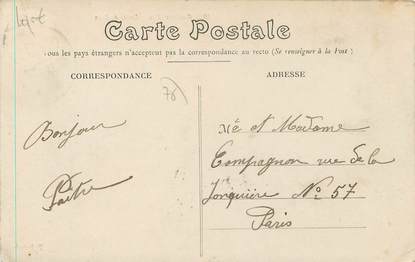 Carte Postale
Tous les pays étrangers n'acceptent pas la correspondance au recto (Se renseigner à la Post)
CORRESPONDANCE
ADRESSE
78
Bonjour
Mé et Madame
Compagnon rue de la
Jonquière No 57
Paris